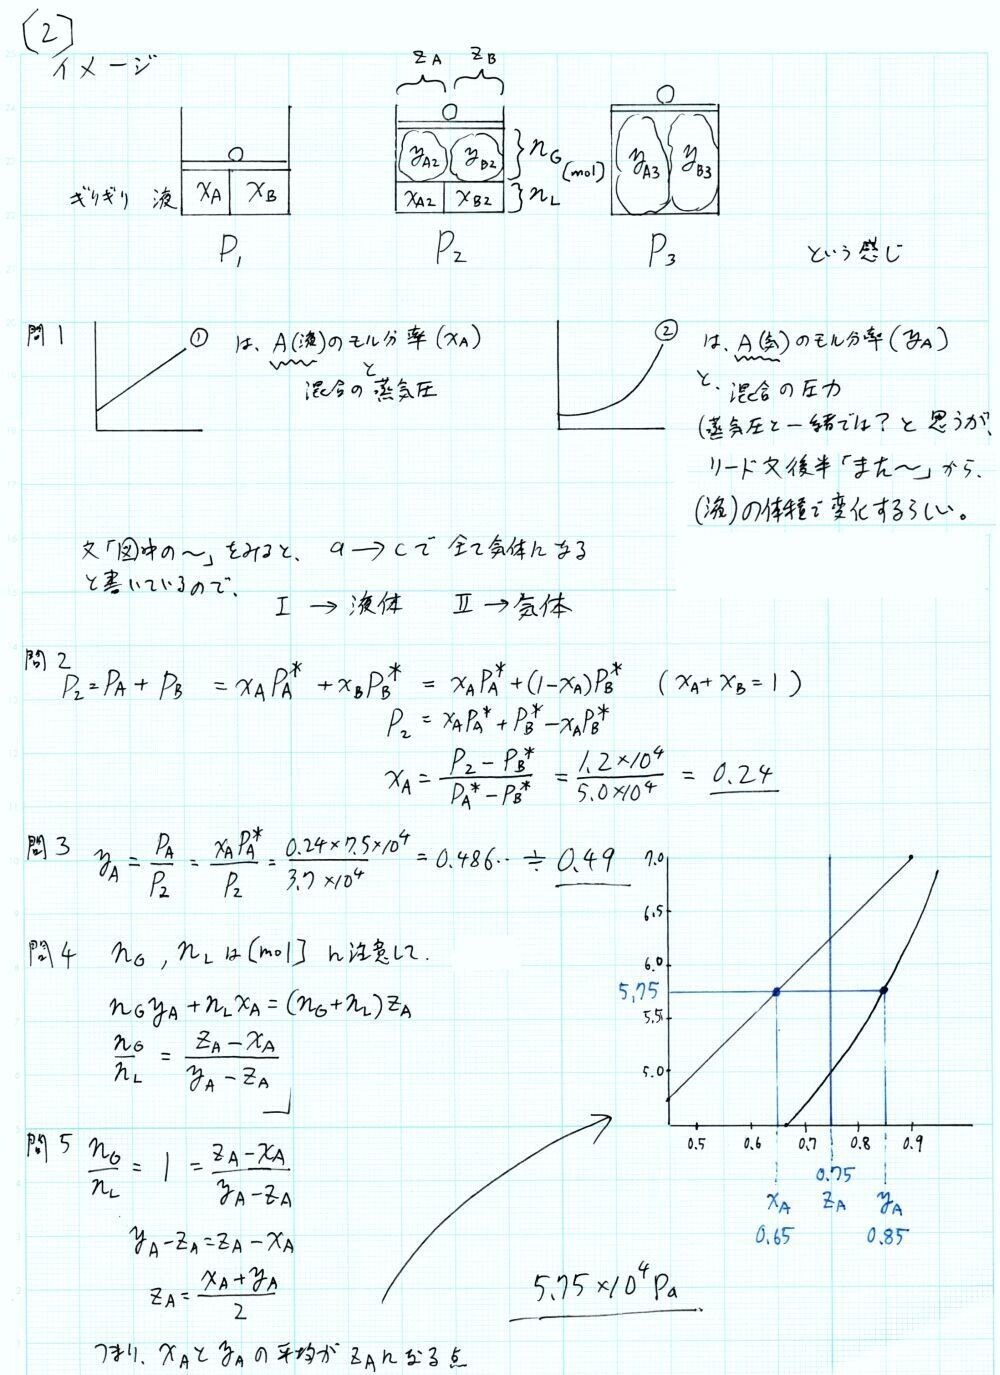 (2)
イメージ
zA zB
O
O
O
yA2 yB2
nG
(mol)
yA3 yB3
ぎりぎり 液
xA xB
xA2 xB2
nL
P1
P2
P3
という感じ
問1
① は、A(液)のモル分率(xA)
と
混合の蒸気圧
② は、A(気)のモル分率(yA)
と、混合の圧力
(蒸気圧と一緒では?と思うが、
リード文後半「また〜」から、
(液)の体積で変化するらしい。
文「図中の〜」をみると、a→cで全て気体になる
と書いているので、
I → 液体 II → 気体
問2
P2 = PA + PB = xAPA* + xBPB* = xAPA* + (1-xA)PB* (xA + xB = 1)
P2 = xAPA* + PB* - xAPB*
xA = (P2 - PB*)/(PA* - PB*) = (1.2×10^4)/(5.0×10^4) = 0.24
問3 yA = PA/P2 = xAPA*/P2 = (0.24×7.5×10^4)/(3.7×10^4) = 0.486‥ ≑ 0.49
問4 nG, nLは[mol]に注意して、
nGyA + nLxA = (nG + nL)zA
nG/nL = (zA - xA)/(yA - zA)
問5 nG/nL = 1 = (zA - xA)/(yA - zA)
yA - zA = zA - xA
zA = (xA + yA)/2
つまり、xAとyAの平均がzAになる点
7.0
6.5
6.0
5.75
5.5
5.0
0.5 0.6 0.7 0.8 0.9
0.75
xA zA yA
0.65 0.85
5.75×10^4 Pa